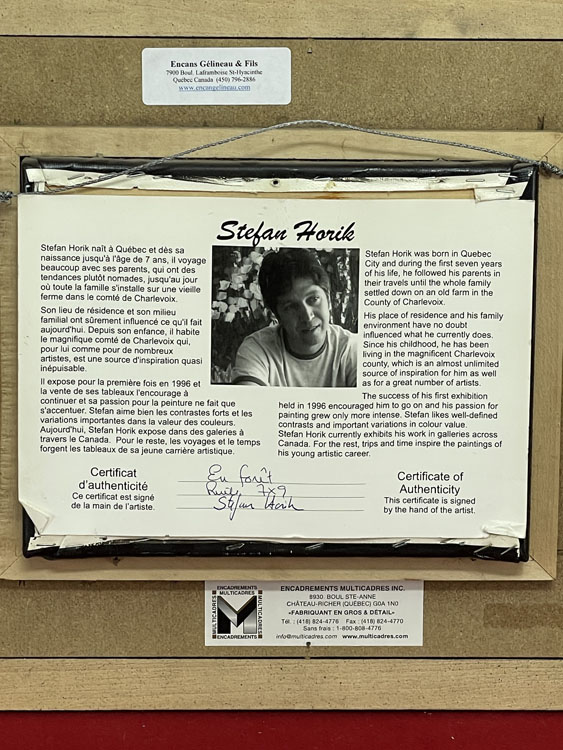 Encans Gélineau & Fils
7900 Boul. Laframboise St-Hyacinthe
Québec Canada (450) 796-2886
www.encangelineau.com
Stefan Horik
Stefan Horik naît à Québec et dès sa
naissance jusqu'à l'âge de 7 ans, il voyage
beaucoup avec ses parents, qui ont des
tendances plutôt nomades, jusqu'au jour
où toute la famille s'installe sur une vieille
ferme dans le comté de Charlevoix.
Son lieu de résidence et son milieu
familial ont sûrement influencé ce qu'il fait
aujourd'hui. Depuis son enfance, il habite
le magnifique comté de Charlevoix qui,
pour lui comme pour de nombreux
artistes, est une source d'inspiration quasi
inépuisable.
Il expose pour la première fois en 1996 et
la vente de ses tableaux l'encourage à
continuer et sa passion pour la peinture ne fait que
s'accentuer. Stefan aime bien les contrastes forts et les
variations importantes dans la valeur des couleurs.
Aujourd'hui, Stefan Horik expose dans des galeries à
travers le Canada. Pour le reste, les voyages et le temps
forgent les tableaux de sa jeune carrière artistique.
Stefan Horik was born in Quebec
City and during the first seven years
of his life, he followed his parents in
their travels until the whole family
settled down on an old farm in the
County of Charlevoix.
His place of residence and his family
environment have no doubt
influenced what he currently does.
Since his childhood, he has been
living in the magnificent Charlevoix
county, which is an almost unlimited
source of inspiration for him as well
as for a great number of artists.
The success of his first exhibition
held in 1996 encouraged him to go on and his passion for
painting grew only more intense. Stefan likes well-defined
contrasts and important variations in colour value.
Stefan Horik currently exhibits his work in galleries across
Canada. For the rest, trips and time inspire the paintings of
his young artistic career.
Certificat
d'authenticité
Ce certificat est signé
de la main de l'artiste.
En forêt
7x9
Stefan Horik
Certificate of
Authenticity
This certificate is signed
by the hand of the artist.
ENCADREMENTS
MULTICADRES
MULTICADRES
MULTICADRES
ENCADREMENTS
ENCADREMENTS MULTICADRES INC.
8930, BOUL STE-ANNE
CHÂTEAU-RICHER (QUÉBEC) G0A 1N0
«FABRIQUANT EN GROS & DÉTAIL»
Tél. : (418) 824-4776 Fax : (418) 824-4770
Sans frais : 1-800-808-4776
info@multicadres.com www.multicadres.com